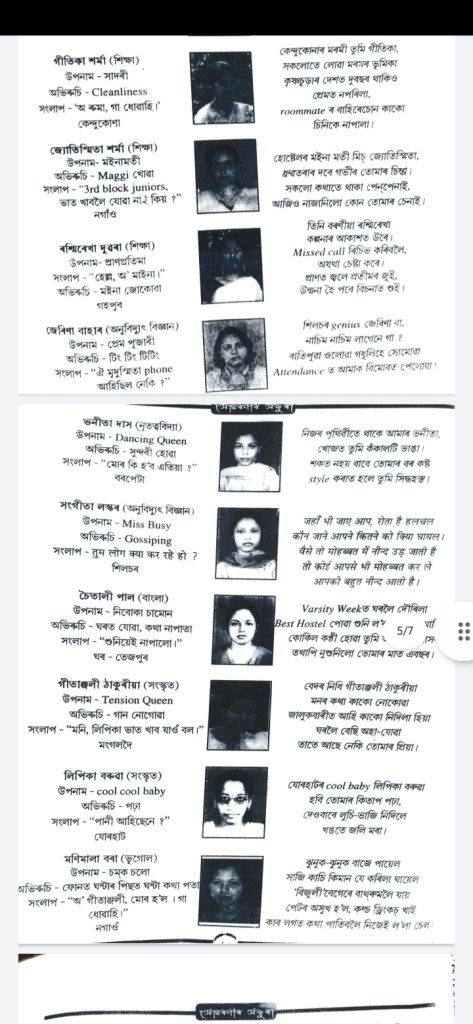 গীতিকা শৰ্মা (শিক্ষা)
উপনাম - সাদৰী
অভিৰুচি - Cleanliness
সংলাপ - "অ' ৰুমা, গা ধোৱাহি।"
কেন্দুকোণা
কেন্দুকোনাৰ মৰমী তুমি গীতিকা,
সকলোতে লোৱা মৰমৰ ভূমিকা
কৃষ্ণচূড়াৰ দেশত দুবছৰ থাকিও
প্ৰেমত নপৰিলা,
roommate ৰ বাহিৰেচোন কাকো
চিনিকে নাপালা।
জ্যোতিস্মিতা শৰ্মা (শিক্ষা)
উপনাম- মইনামতী
অভিৰুচি - Maggi খোৱা
সংলাপ - "3rd block juniors,
ভাত খাবলৈ যোৱা নাই কিয় ?"
নগাঁও
হোষ্টেলৰ মইনা মতী মিচ্ জ্যোতিস্মিতা,
দৰে গভীৰ তোমাৰ চিন্তা।
সকলো কথাতে থাকা পেন্‌পেনাই,
আজিও নাজানিলো কোন তোমাৰ চেনাই।
ৰশ্মিৰেখা দুৱৰা (শিক্ষা)
উপনাম- প্ৰাণপ্ৰতিমা
সংলাপ - "হেল্ল, অ' মাইনা।"
অভিৰুচি - মইনা জোকোৱা
গহপুৰ
তিনি বৰণীয়া ৰশ্মিৰেখা
কল্পনাৰ আকাশত উৰে।
Missed call ৰিচিভ কৰিবলৈ,
অযথা চেষ্টা কৰে।
প্ৰাণত জ্বলে প্ৰতীমৰ জুই,
উন্মনা হৈ পৰে বিচনাত শুই।
জেৰিণা বাহাৰ (অনুবিদ্যুৎ বিজ্ঞান)
উপনাম - প্ৰেম পূজাৰী
অভিৰুচি - টিং টিং টিটিং
সংলাপ - "ঐ মৃদুস্মিতা phone
আহিছিল নেকি ?"
শিলচৰ genius জেৰিণা বা,
নাচিম নাচিম লাগেনে গা ?
ৰাতিপুৱা ওলোৱা গধূলিহে সোমোৱা
Attendance ত আমাক বিমোৰত পেলোৱা।
ভনীতা দাস (নৃতত্ববিদ্যা)
উপনাম - Dancing Queen
অভিৰুচি - সুন্দৰী হোৱা
সংলাপ - "মোৰ কি হ'ব এতিয়া ?"
বৰপেটা
নিজৰ পৃথিৱীতে থাকে আমাৰ ভনীতা,
খোজত তুমি কঁকালটি ভাঙা।
শকত নহয় বাবে তোমাৰ বৰ কষ্ট
style কৰাত হলে তুমি সিদ্ধহস্ত।
সংগীতা লস্কৰ (অনুবিদ্যুৎ বিজ্ঞান)
উপনাম - Miss Busy
অভিৰুচি - Gossiping
সংলাপ - तुम लोग क्या कर रहे हो ?
শিলচৰ
जहाँ भी जाए आप, रोता है हलचल
कौन जाने आपने कितने को किया घायल।
वैसे तो मोहब्बत में नीन्द उड़ जाती है
तो कोई आपसे भी मोहब्बत कर ले
आपको बहुत नीन्द आती है।
চৈতালী পাল (বাংলা)
উপনাম - নিবোকা চামোন
অভিৰুচি - ঘৰত যোৱা, কথা নাপাতা
সংলাপ - "শুনিয়েই নাপালো।"
ঘৰ - তেজপুৰ
Varsity Weekত ঘৰলৈ দৌৰিলা
Best Hostel পোৱা শুনি
কোকিল কণ্ঠী হোৱা তুমি
তথাপি নুশুনিলো তোমাৰ মাত এবছৰ।
5/7
গীতাঞ্জলী ঠাকুৰীয়া (সংস্কৃত)
উপনাম - Tension Queen
অভিৰুচি - গান নোগোৱা
সংলাপ - "মনি, লিপিকা ভাত খাব যাওঁ বল।"
মংগলদৈ
বেদৰ নিধি গীতাঞ্জলী ঠাকুৰীয়া
মনৰ কথা কাকো নোকোৱা
জালুকবাৰীত আহি কাকো নিদিলা হিয়া
ঘৰলৈ বেছি অহা-যোৱা
তাতে আছে নেকি তোমাৰ প্ৰিয়া।
লিপিকা বৰুৱা (সংস্কৃত)
উপনাম - cool cool baby
অভিৰুচি - পঢ়া
সংলাপ - "পানী আহিছেনে ?"
যোৰহাট
যোৰহাটৰ cool baby লিপিকা বৰুৱা
হবি তোমাৰ কিতাপ পঢ়া,
দেওবাৰে লুচি-ভাজি নিদিলে
খঙতে জলি মৰা।
মণিমালা বৰা (ভূগোল)
উপনাম - চমক্ চলো
অভিৰুচি - ফোনত ঘন্টাৰ পিছত ঘন্টা কথা পতা
সংলাপ - "অ' গীতাঞ্জলী, মোৰ হ'ল। গা
ধোৱাহি।"
নগাওঁ
ঝুনুক-ঝুনুক বাজে পায়েল
সাজি কাচি কিমান যে কৰিলা ঘায়েল
বিজুলী বৈগেৰে বাথৰুমলৈ যায়
পেটৰ অসুখ হ'ল, কল্ড ড্ৰিংকচ্ খাই
কাৰ লগত কথা পাতিবলৈ নিজেই ল'লা চেল।